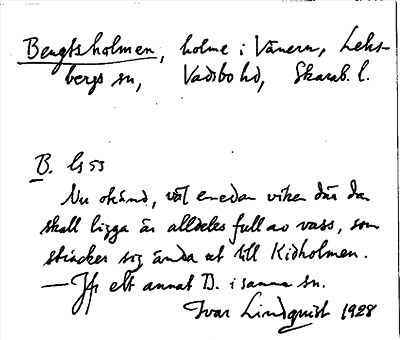 Bengtsholmen, holme i Vänern, Leks-
bergs sn, Vadsbo hd, Skarab. l.
B. Gs 53
Nu okänd, väl emedan viken där den
skall ligga är alldeles full av vass, som
sträcker sig ända ut till Kidholmen.
— Jfr ett annat B. i samma sn.
Ivar Lindquist 1928